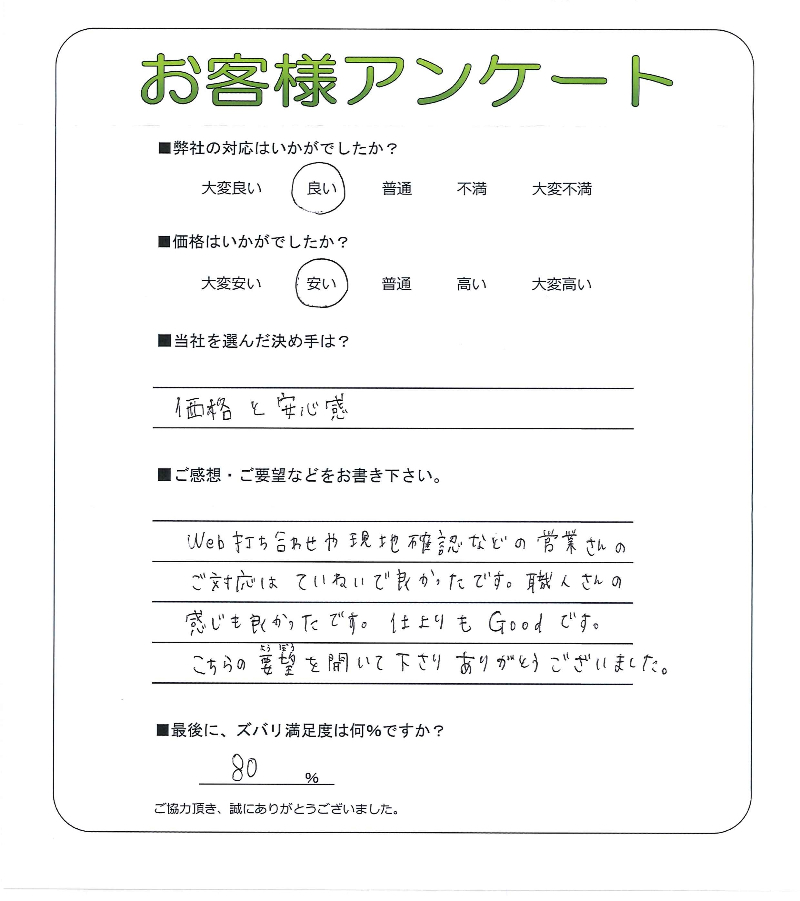 お客様アンケート
■弊社の対応はいかがでしたか？
大変良い 良い 普通 不満 大変不満
■価格はいかがでしたか？
大変安い 安い 普通 高い 大変高い
■当社を選んだ決め手は？
価格と安心感
■ご感想・ご要望などをお書き下さい。
Web打ち合わせや現地確認などの営業さんの
ご対応は ていねいで良かったです。職人さんの
感じも良かったです。仕上りも Good です。
こちらの要望を開いて下さり ありがとうございました。
よう ぼう
■最後に、ズバリ満足度は何％ですか？
80 ％
ご協力頂き、誠にありがとうございました。